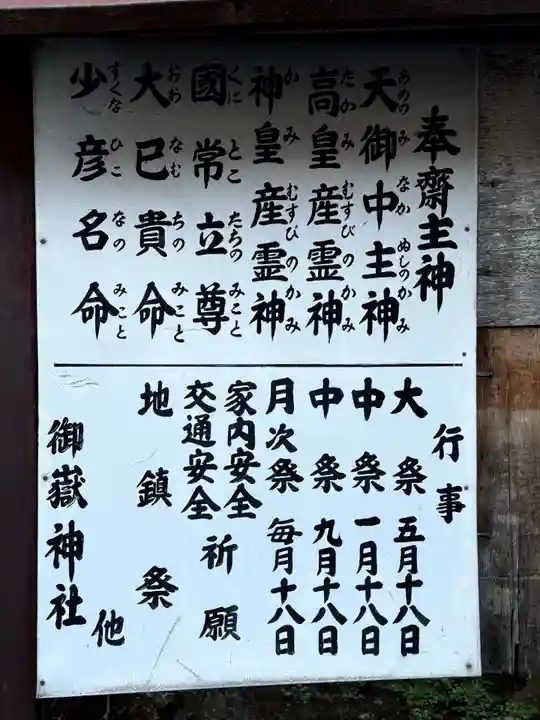 奉齋主神
天御中主神
あめのみなかぬしのかみ
高皇産霊神
たかみむすびのかみ
神皇産霊神
かみむすびのかみ
國常立尊
くにとこたちのみこと
大已貴命
おおなむちのみこと
少彦名命
すくなひこなのみこと
行事
大祭 五月十八日
中祭 一月十八日
中祭 九月十八日
月次祭 毎月十八日
家内安全
交通安全
祈願
地鎮祭
他
御嶽神社